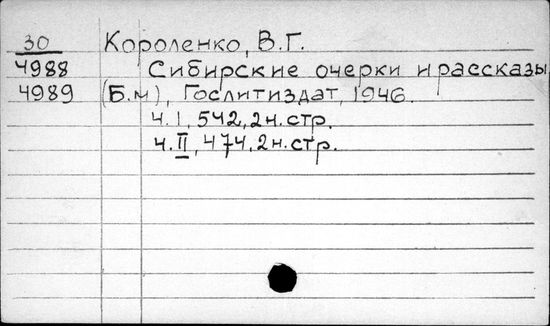 30 Короленко, В.Г.
4988 Сибирские очерки и рассказы.
4989 (Б.м), Гослитиздат, 1946.
ч. I, 542, 2 н. стр.
ч. II, 474, 2 н. стр.